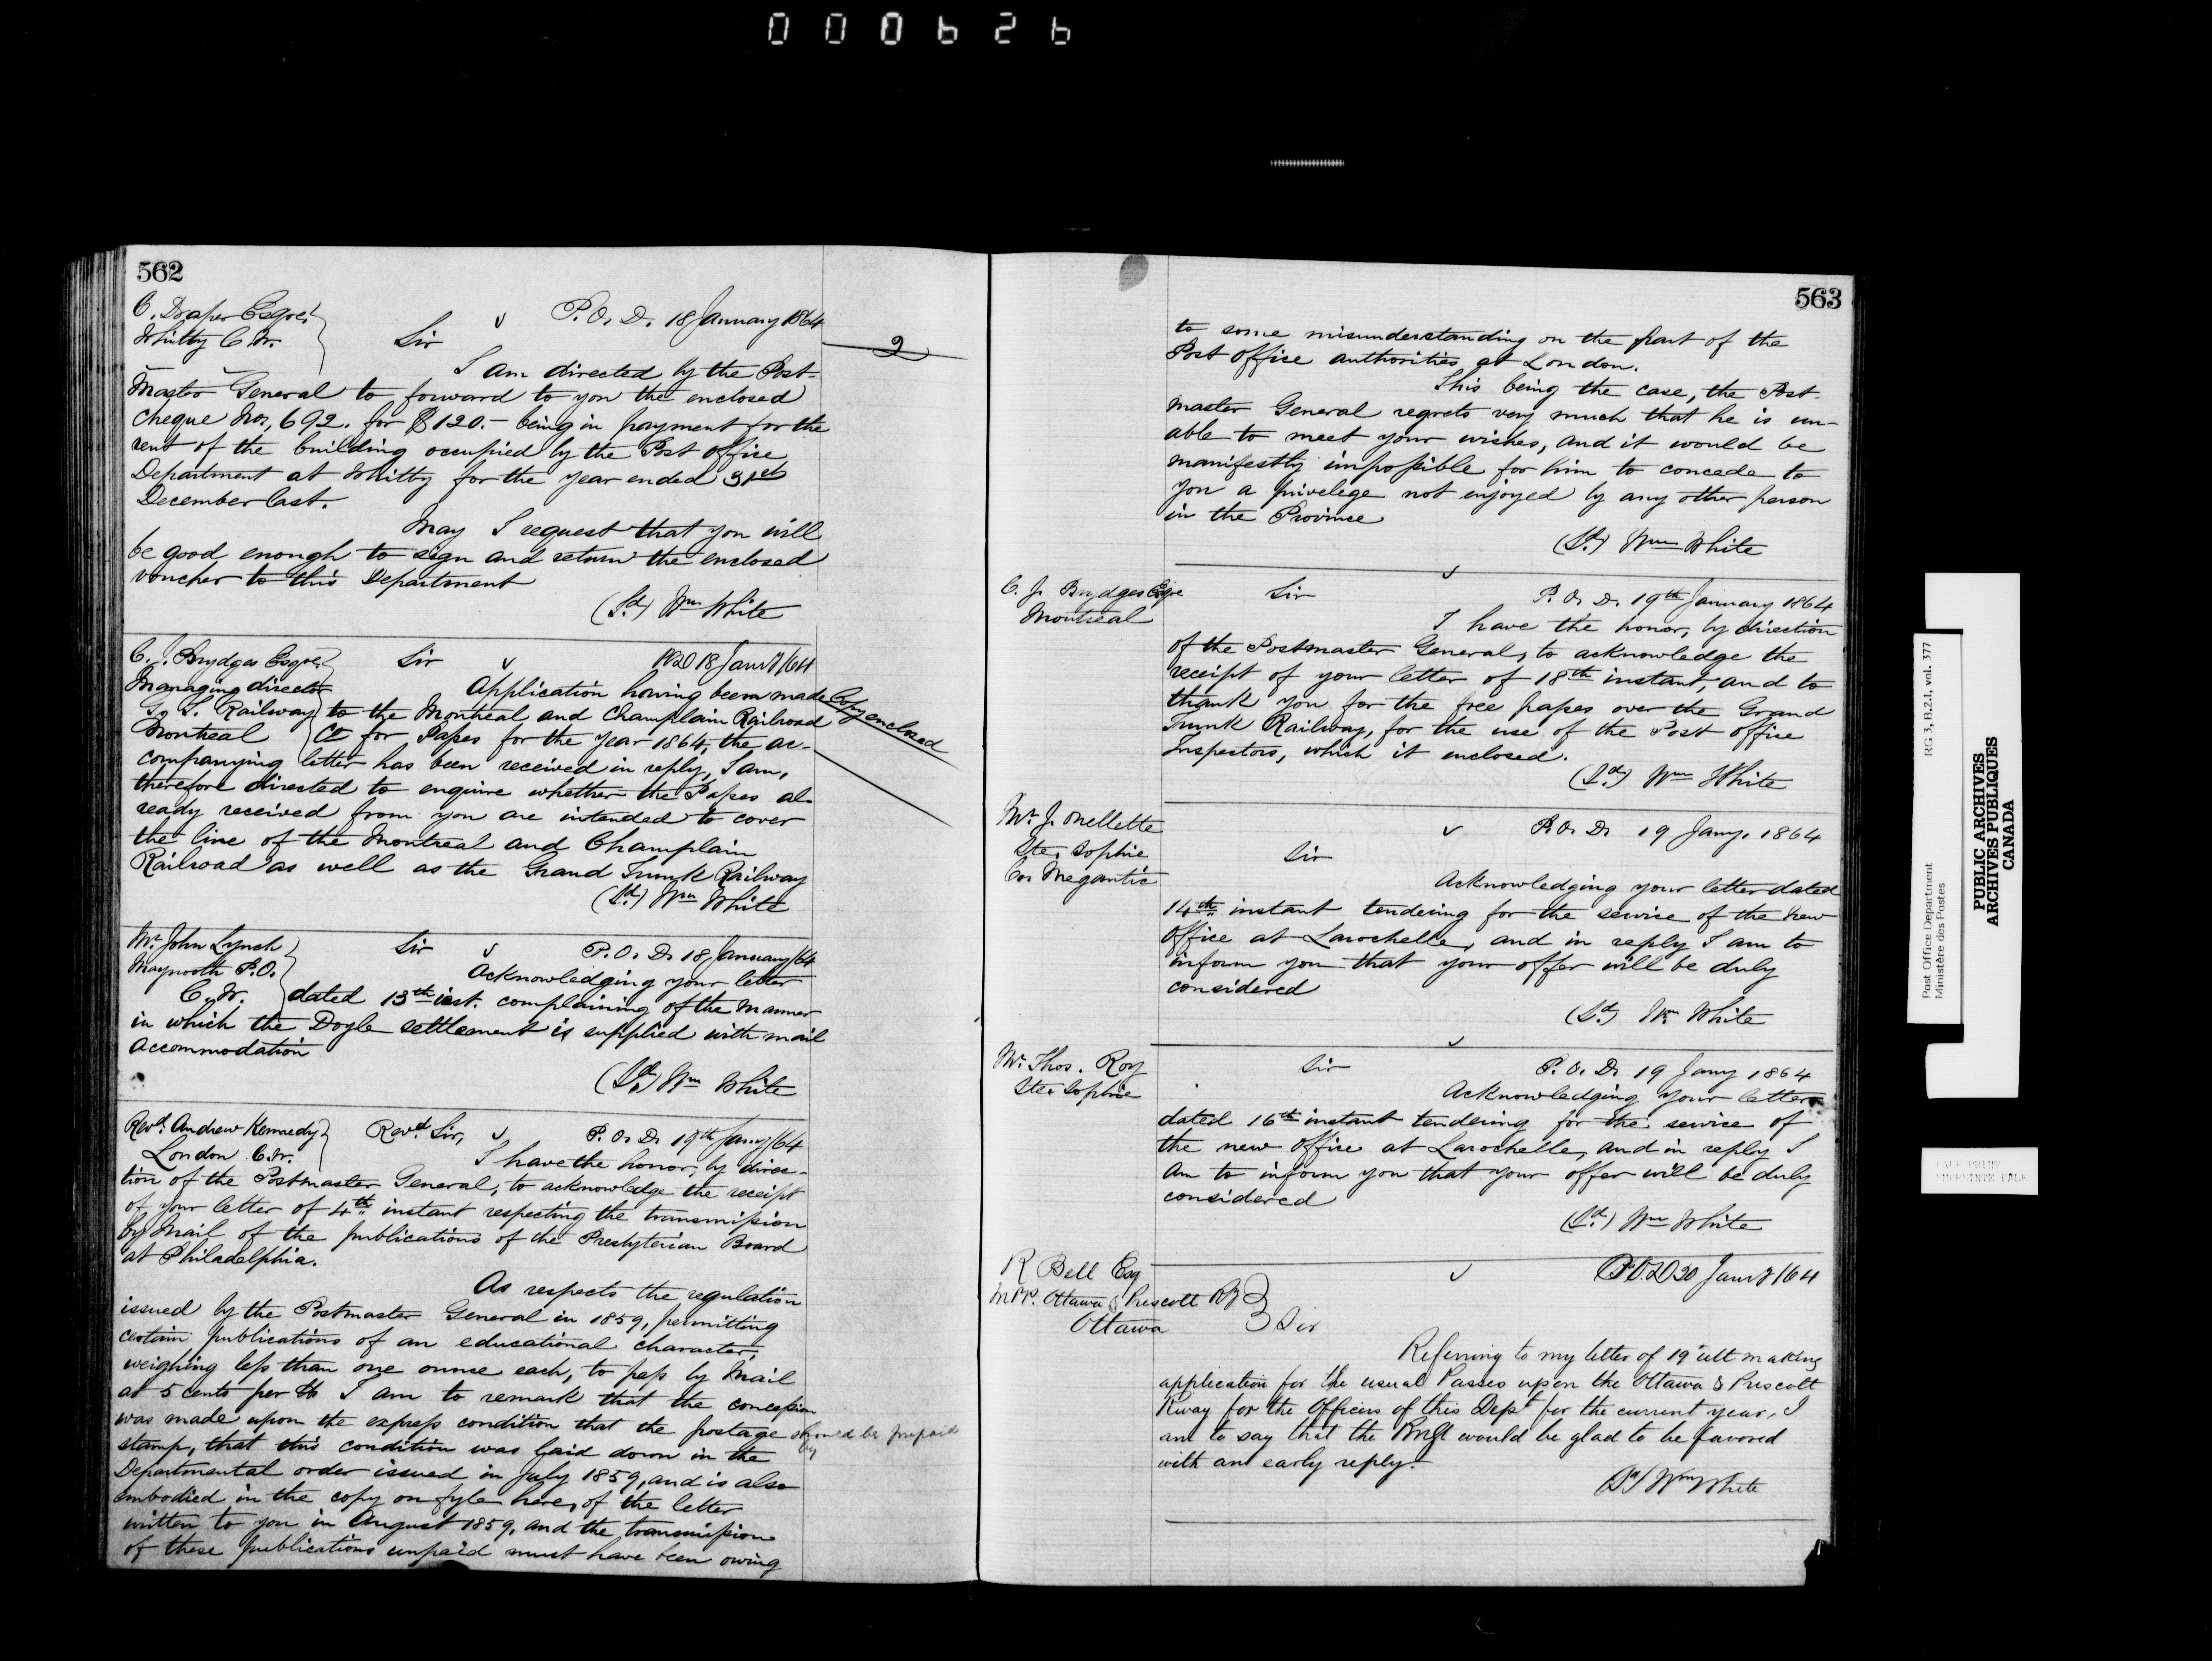 000626
562
C. Draper Esqre.
Whitby C.W.
P.O.D. 18 January 1864
Sir
2
I am directed by the Post-
Master General to forward to you the enclosed
cheque No. 692. for $120.- being in payment for the
rent of the building occupied by the Post Office
Department at Whitby for the year ended 31st
December last.
May I request that you will
be good enough to sign and return the enclosed
voucher to this Department
(Sd) Wm White
C. J. Brydges Esqre.
Managing director
G. T. Railway
Montreal
Sir
POD 18 Jany/64
Application having been made
to the Montreal and Champlain Railroad
Co for Passes for the year 1864, the ac-
Copy enclosed
companying letter has been received in reply, I am,
therefore directed to enquire whether the Passes al-
ready received from you are intended to cover
the line of the Montreal and Champlain
Railroad as well as the Grand Trunk Railway
(Sd) Wm White
Mr. John Lynch
Maynooth P.O.
C.W.
Sir
P.O.D. 18 January/64
Acknowledging your letter
dated 13th inst. complaining of the manner
in which the Doyle settlement is supplied with mail
accommodation
(Sd) Wm White
Revd. Andrew Kennedy
London C.W.
Revd. Sir,
P.O.D. 19th Jany/64
I have the honor, by direc-
tion of the Postmaster General, to acknowledge the receipt
of your letter of 4th instant respecting the transmission
by Mail of the publications of the Presbyterian Board
at Philadelphia.
As respects the regulation
issued by the Postmaster General in 1859, permitting
certain publications of an educational character,
weighing less than one ounce each, to pass by Mail
at 5 cents per lb I am to remark that the concession
was made upon the express condition that the postage should be prepaid
by
stamp, that this condition was laid down in the
Departmental order issued in July 1859, and is also
embodied in the copy on fyle here, of the letter
written to you in August 1859, and the transmission
of these publications unpaid must have been owing
563
to some misunderstanding on the part of the
Post Office authorities at London.
This being the case, the Post-
master General regrets very much that he is un-
able to meet your wishes, and it would be
manifestly impossible for him to concede to
you a privelege not enjoyed by any other person
in the Province
(Sd) Wm White
C. J. Brydges Esqre
Montreal
Sir
P.O.D. 19th January 1864
I have the honor, by direction
of the Postmaster General, to acknowledge the
receipt of your letter of 18th instant, and to
thank you for the free passes over the Grand
Trunk Railway, for the use of the Post Office
Inspectors, which it enclosed.
(Sd) Wm White
Mr. J. Mellette
Ste. Sophie
Co. Megantic
P.O.D. 19 Jany. 1864
Sir
Acknowledging your letter dated
14th instant tendering for the service of the new
Office at Larochelle, and in reply I am to
inform you that your offer will be duly
considered
(Sd) Wm White
Mr. Thos. Roy
Ste. Sophie
Sir
P.O.D. 19 Jany 1864
Acknowledging your letter
dated 16th instant tendering for the service of
the new Office at Larochelle, and in reply I
am to inform you that your offer will be duly
considered
(Sd) Wm White
R Bell Esq
M.P.P. Ottawa & Prescott Ry
Ottawa
POD 20 Jany/64
Sir
Referring to my letter of 19 ult making
application for the usual Passes upon the Ottawa & Prescott
Rway for the Officers of this Dept for the current year, I
am to say that the PMGl would be glad to be favored
with an early reply.
(Sd) Wm White
Post Office Department
Ministère des Postes
RG 3, B.2.1, vol. 377
PUBLIC ARCHIVES
ARCHIVES PUBLIQUES
CANADA